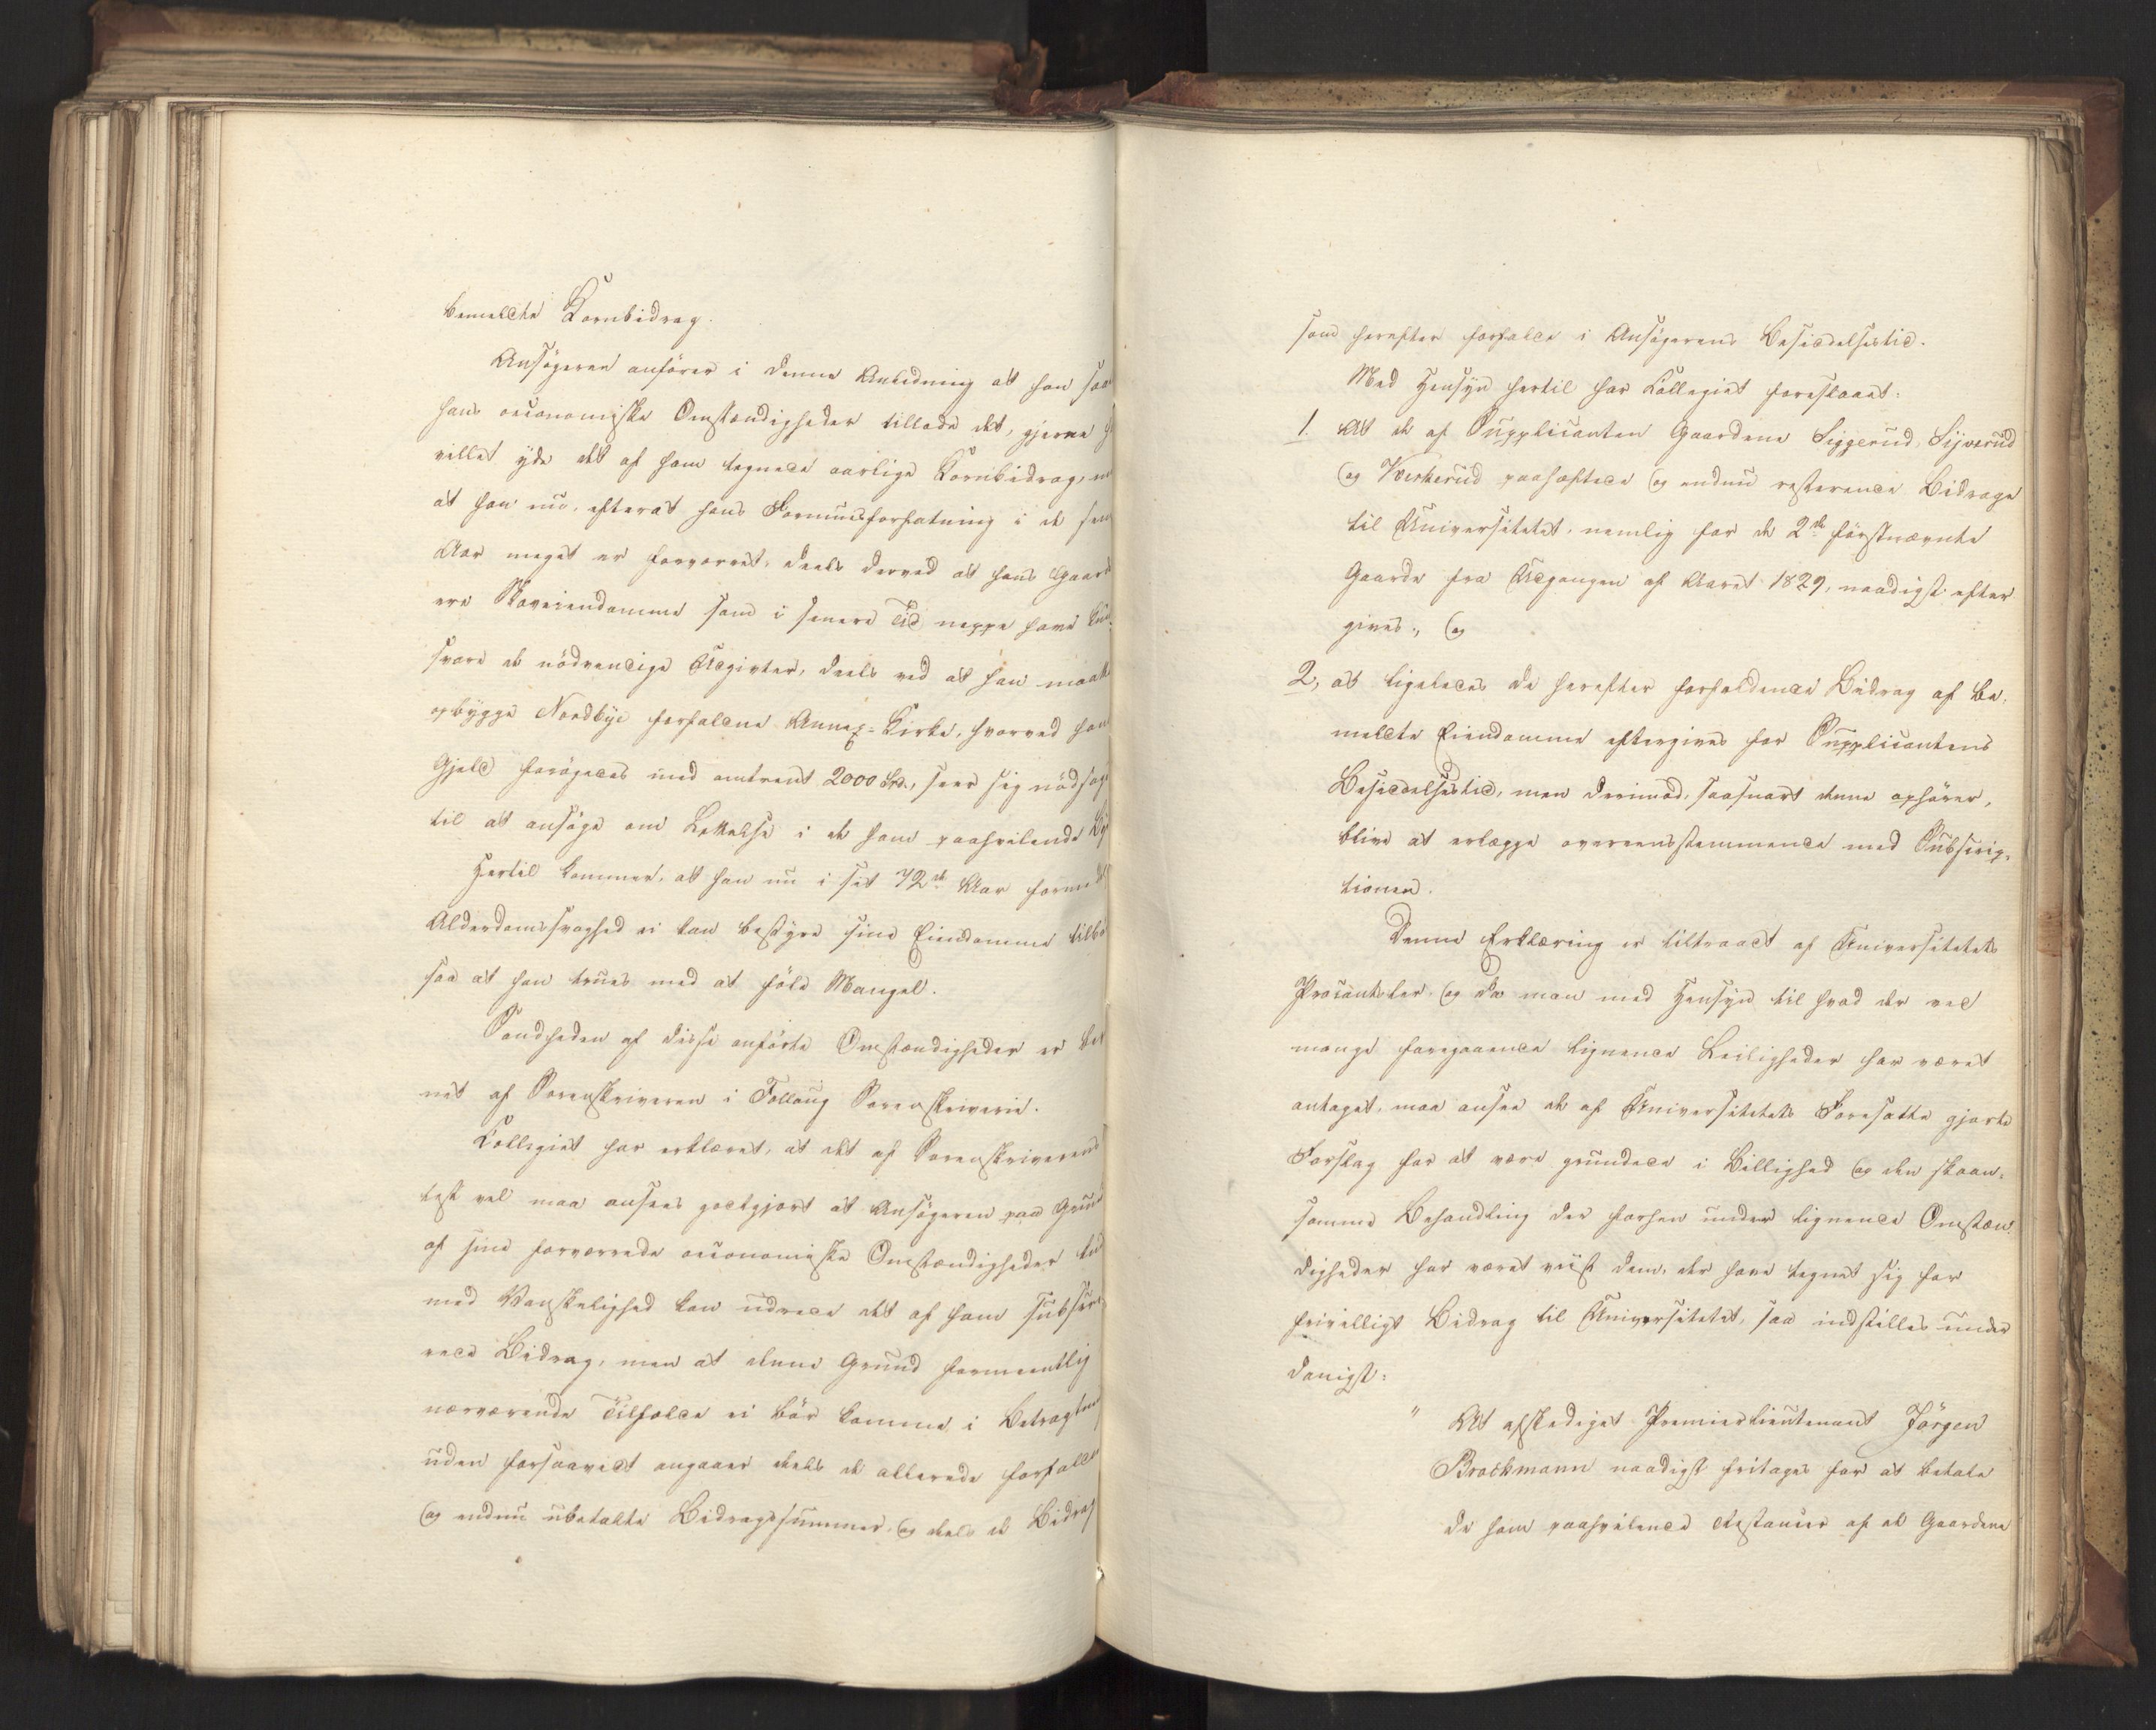 bemeldte Kornbidrag.
Ansøgeren anfører i denne Anledning at han saa
hans oeconomiske Omstændigheder tillode det, gjerne
villet yde det af ham tegnede aarlige Kornbidrag, m
at han nu, efterat hans Formuesforfatning i de sen
Aar meget er forværret, deels derved at hans Gaard
ere Skoveiendomme som i senere Tid neppe have kun
svare de nødvendige Udgivter, deels ved at han maatt
opbygge Nordbye forfaldne Annex-Kirke, hvorved han
Gjeld forøgedes med omtrent 2000 Spd., seer sig nødsag
til at ansøge om Lettelse i de ham paahvilende By
Hertil kommer, at han nu i sit 72de Aar formed
Alderdomssvaghed ei kan bestyre sine Eiendomme tilbø
saa at han trues med at føle Mangel.
Sandheden af disse anførte Omstændigheder er be
net af Sorenskriveren i Follaug Sorenskriverie.
Collegiet har erklæret, at det af Sorenskriverens
test vel maa ansees godtgjort at Ansøgeren paa Grund
af sine forværrede oeconomiske Omstændigheder kun
med Vanskelighed kan udrede det af ham subscri
rede Bidrag, men at denne Grund formeentlig
nærværende Tilfælde ei bør komme i Betragtni
uden forsaavidt angaaer deels de allerede forfald
og endnu ubetalte Bidragssummer, og deels de Bidrag
som herefter forfalde i Ansøgerens Besiddelsestid.
Med Hensyn hertil har Collegiet foreslaaet:
1. At de af Supplicanten Gaardene Siggerud, Sijverud
og Kverkerud paahæftede og endnu resterende Bidrage
til Universitetet, nemlig for de 2de førstnævnte
Gaarde fra Udgangen af Aaret 1829, naadigst efter
gives., og
2, at ligeledes de herefter forfaldende Bidrag af be,
meldte Eiendomme eftergives for Supplicantens
Besiddelsestid, men derimod, saasnart denne ophører,
blive at erlægge overeensstemmende med Subscrip,
tionen.
Denne Erklæring er tiltraadt af Universitetets
Procantsler og da man med Hensyn til hvad der ved
mange foregaaende lignende Leiligheder har været
antaget, maa ansee det af Universitetets Foresatte gjorte
Forslag for at være grundede i Billighed og den skaan,
somme Behandling der forhen under lignende Omstæn,
digheder har været viist dem, der have tegnet sig for
frivilligt Bidrag til Universitetet, saa indstilles under
danigst:
" At afskediget Premierlieutenant Jørgen
Brockmann naadigst fritages for at betale
de ham paahvilende Restancer af de Gaardene